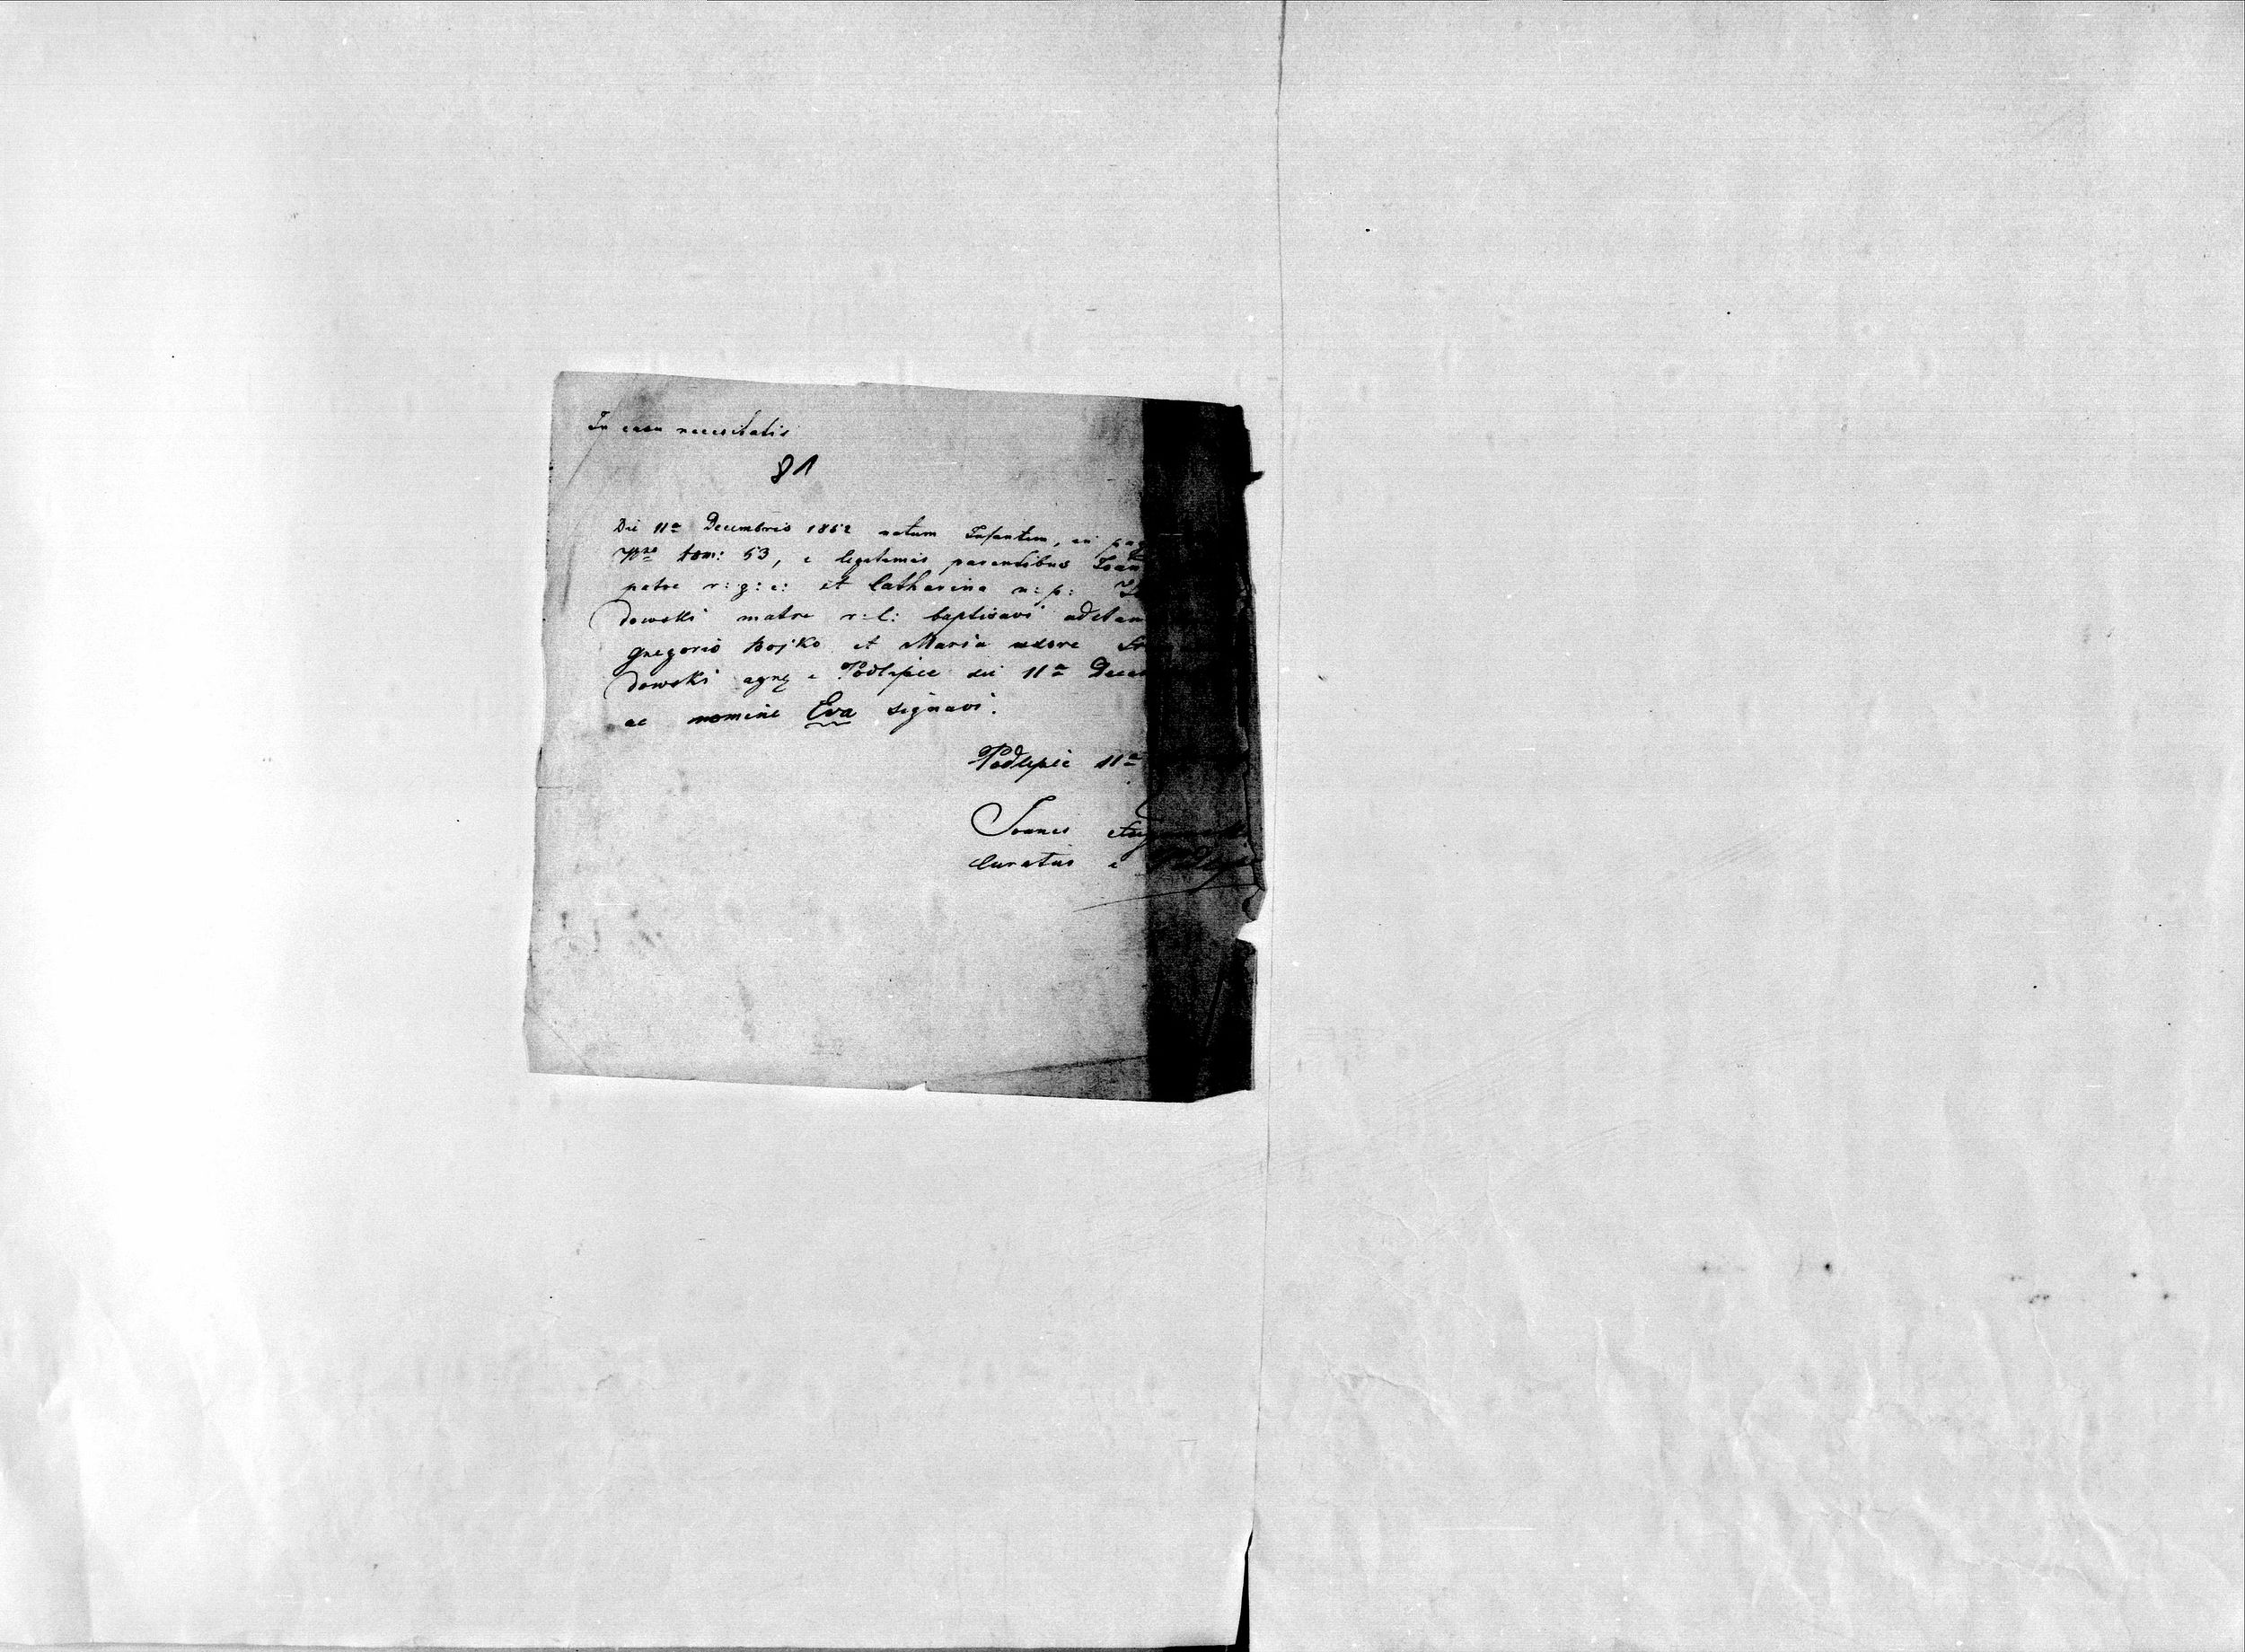 In casu necessitatis
81
Die 11a Decembris 1862 natum Infantem, in pag
Nro dom: 53, e legitimis parentibus Ioan
patre r: g: c: et Catharina n: p:
dowski matre r: l: baptisavi adstan
Gregorio Bojko et Maria uxore
dowski agne e Podlipce die 11a Decem
ac nomine Eva signavi.
Podlipie 11a
Ioannes
Curatus e